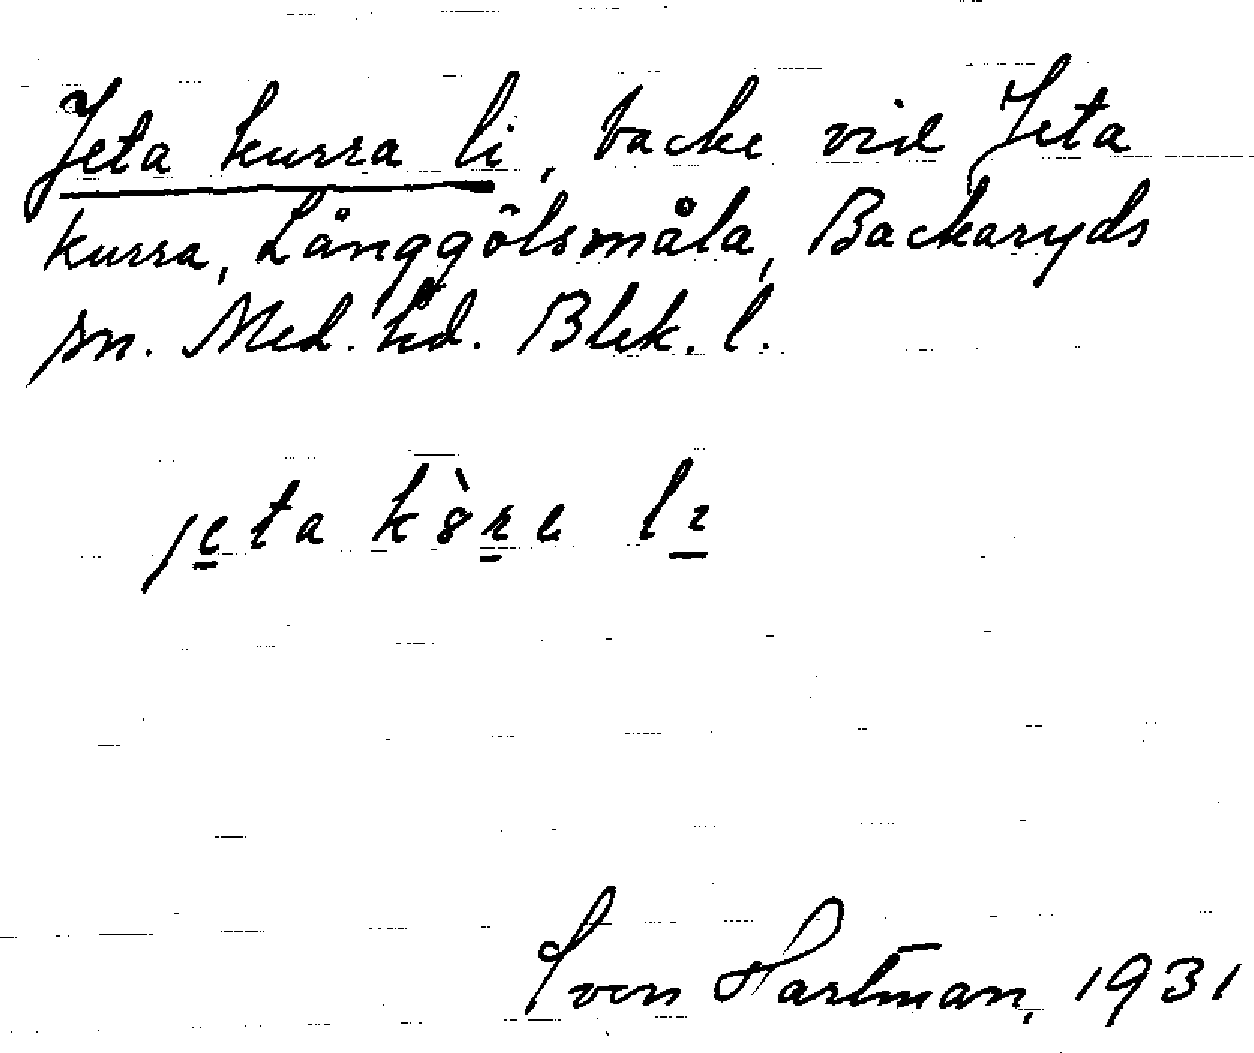 Jeta kurra li, backe vid Jeta
kurra, Långgölsmåla, Backaryds
sn. Med. hd. Blek. l.
jeta kòre lı
Sven Hartman, 1931